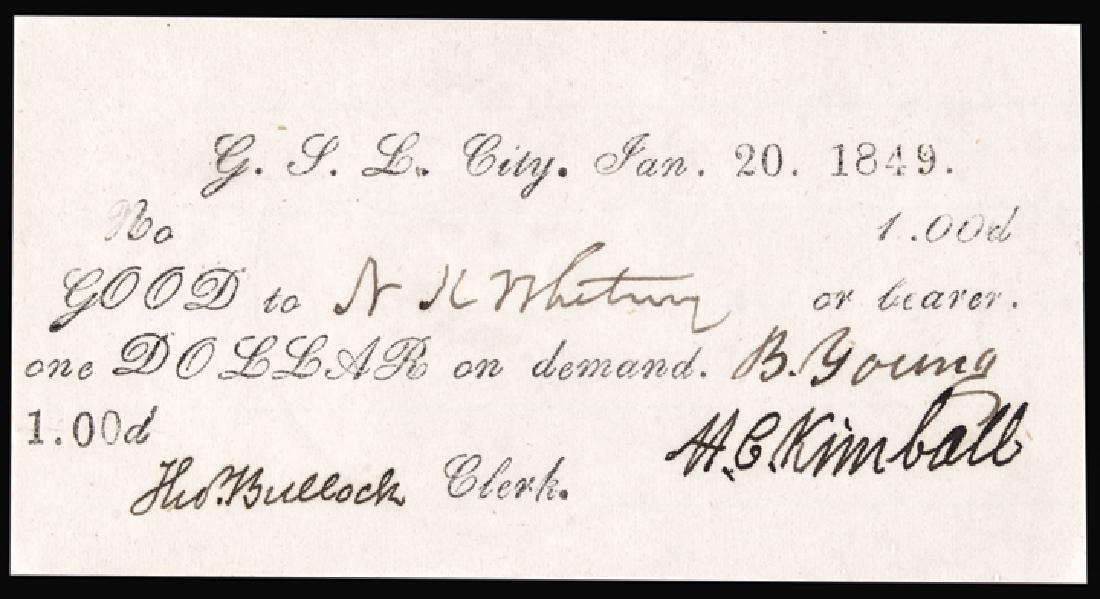 G. S. L. City. Jan. 20. 1849.
No 1.00d
GOOD to N K Whitney or bearer.
one DOLLAR on demand. B. Young
1.00d H. C. Kimball
Tho. Bullock Clerk.